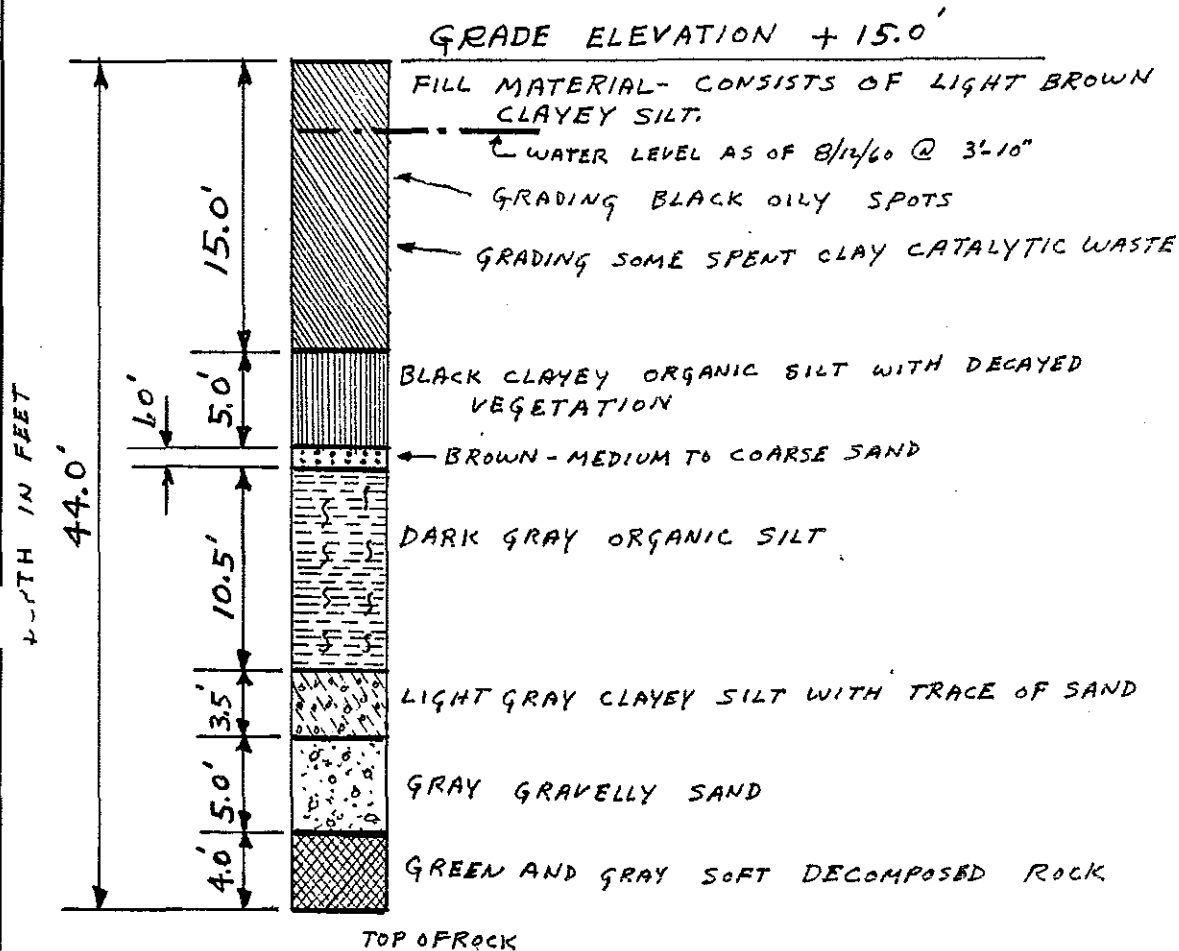 GRADE ELEVATION + 15.0'
FILL MATERIAL- CONSISTS OF LIGHT BROWN
CLAYEY SILT.
WATER LEVEL AS OF 8/12/60 @ 3'-10"
GRADING BLACK OILY SPOTS
GRADING SOME SPENT CLAY CATALYTIC WASTE
15.0'
BLACK CLAYEY ORGANIC SILT WITH DECAYED
VEGETATION
5.0'
1.0'
BROWN - MEDIUM TO COARSE SAND
IN FEET
44.0'
DARK GRAY ORGANIC SILT
10.5'
LIGHT GRAY CLAYEY SILT WITH TRACE OF SAND
3.5'
GRAY GRAVELLY SAND
5.0'
GREEN AND GRAY SOFT DECOMPOSED ROCK
4.0'
TOP OF ROCK